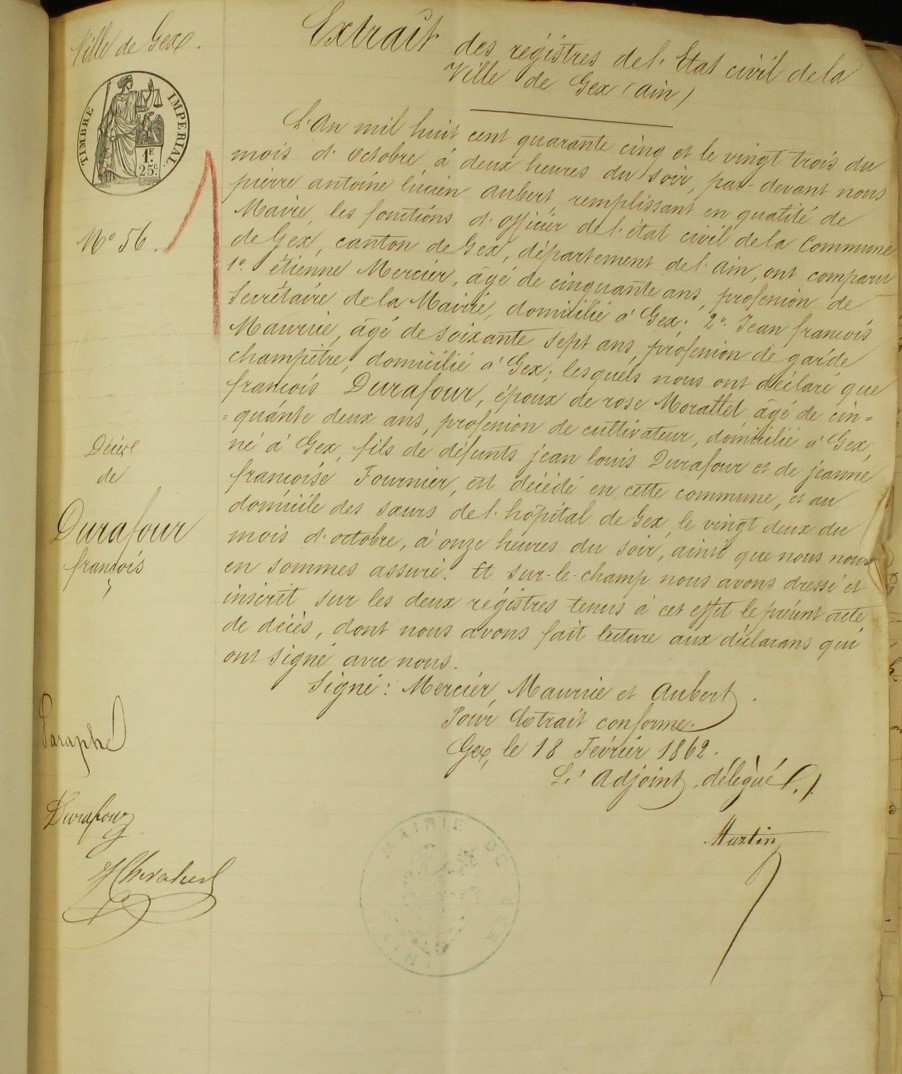 Ville de Gex.
TIMBRE IMPERIAL
1F.
25c.
No 56.
Extrait des régistres de l'Etat civil de la
Ville de Gex (ain)
L'An mil huit cent quarante cinq et le vingt trois du
mois d'octobre à deux heures du soir, par-devant nous
pierre antoine lucien aubert, remplissant en qualité de
Maire, les fonctions d'officier de l'état civil de la Commune
de Gex, canton de Gex, département de l'ain, ont comparu
1o. étienne Mercier, âgé de cinquante ans, profession de
Secrétaire de la Mairie, domicilié à Gex; 2o. Jean françois
Maurié, âgé de soixante sept ans, profession de garde
champêtre, domicilié à Gex; lesquels nous ont déclaré que
françois Durafour, époux de rose Morattel âgé de cin=
=quante deux ans, profession de cultivateur, domicilié à Gex,
né à Gex, fils de défunts jean louis Durafour et de jeanne
françoise Fournier, est décédé en cette commune, et au
domicile des sœurs de l'hôpital de Gex, le vingt deux du
mois d'octobre, à onze heures du soir, ainsi que nous nous
en sommes assuré. Et sur-le-champ nous avons dressé et
inscrit sur les deux régistres tenus à cet effet le présent acte
de décès, dont nous avons fait lecture aux déclarans qui
ont signé avec nous.
Signé: Mercier, Maurié et Aubert.
Pour Extrait conforme.
Gex, le 18 Février 1862.
L'Adjoint délégué
Martin
Décès
de
Durafour
françois
Paraphé
Durafour
MAIRIE DE GEX
AIN